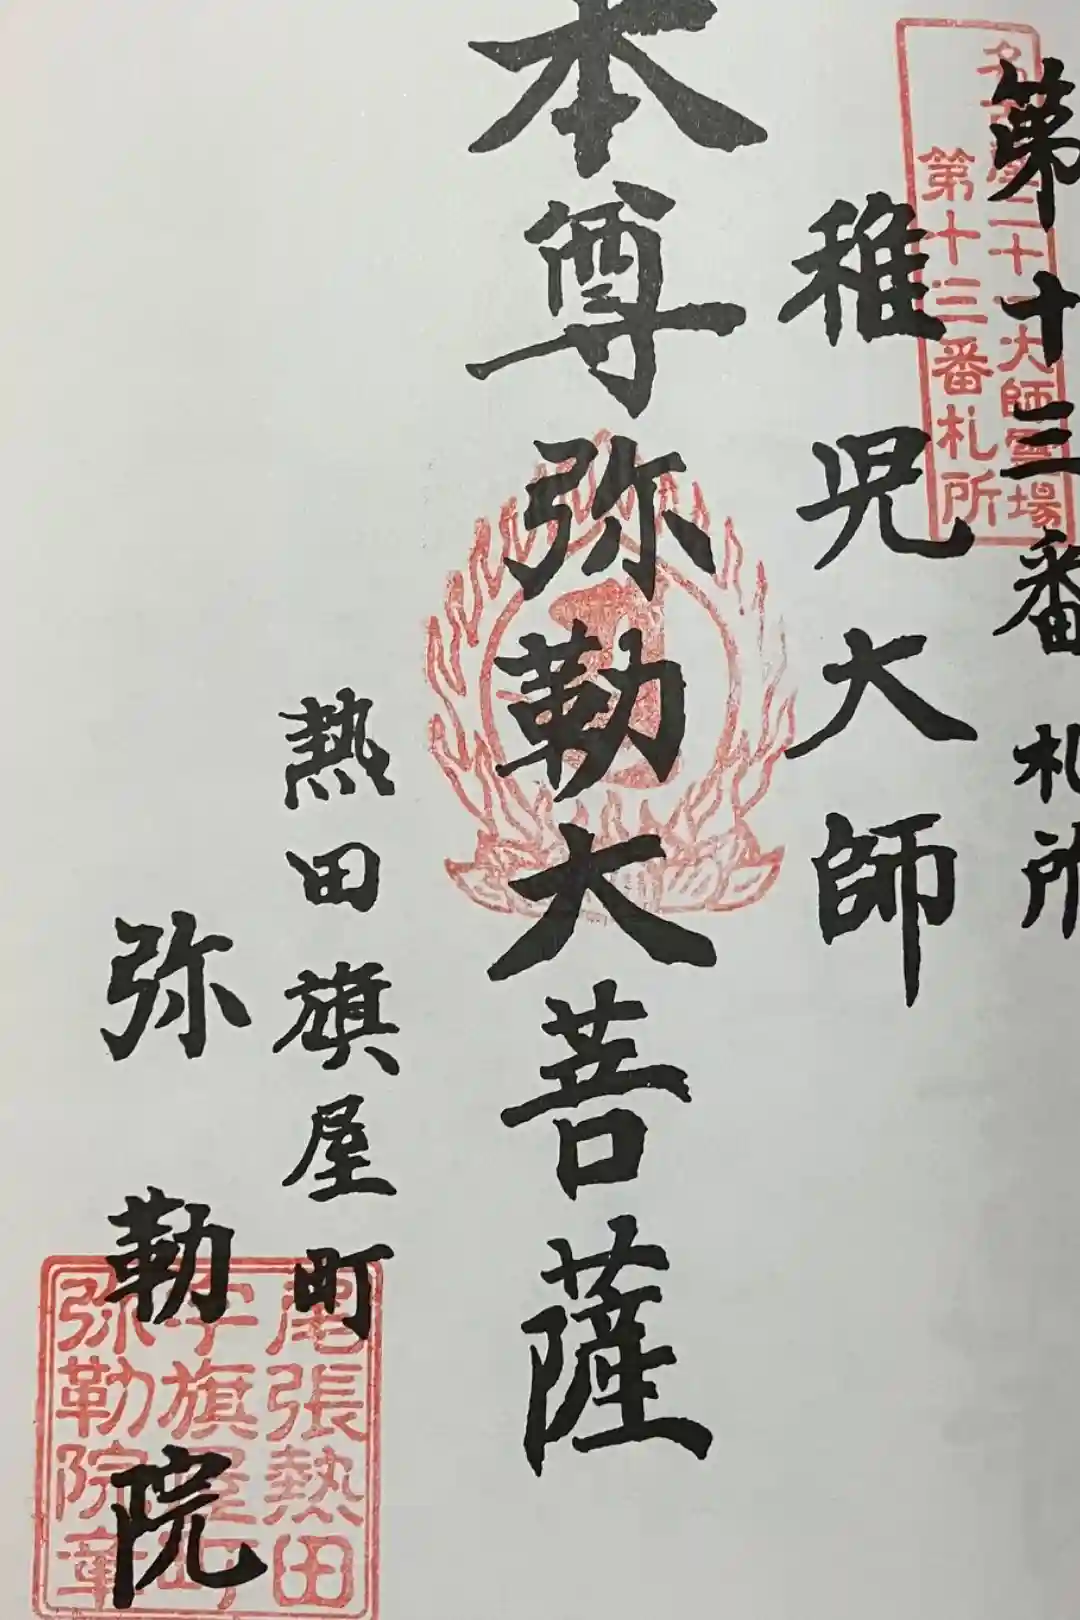 第十三番札所
名古屋二十一大師霊場
第十三番札所
稚児大師
本尊弥勒大菩薩
熱田旗屋町
弥勒院
尾張熱田
字旗屋町
弥勒院章